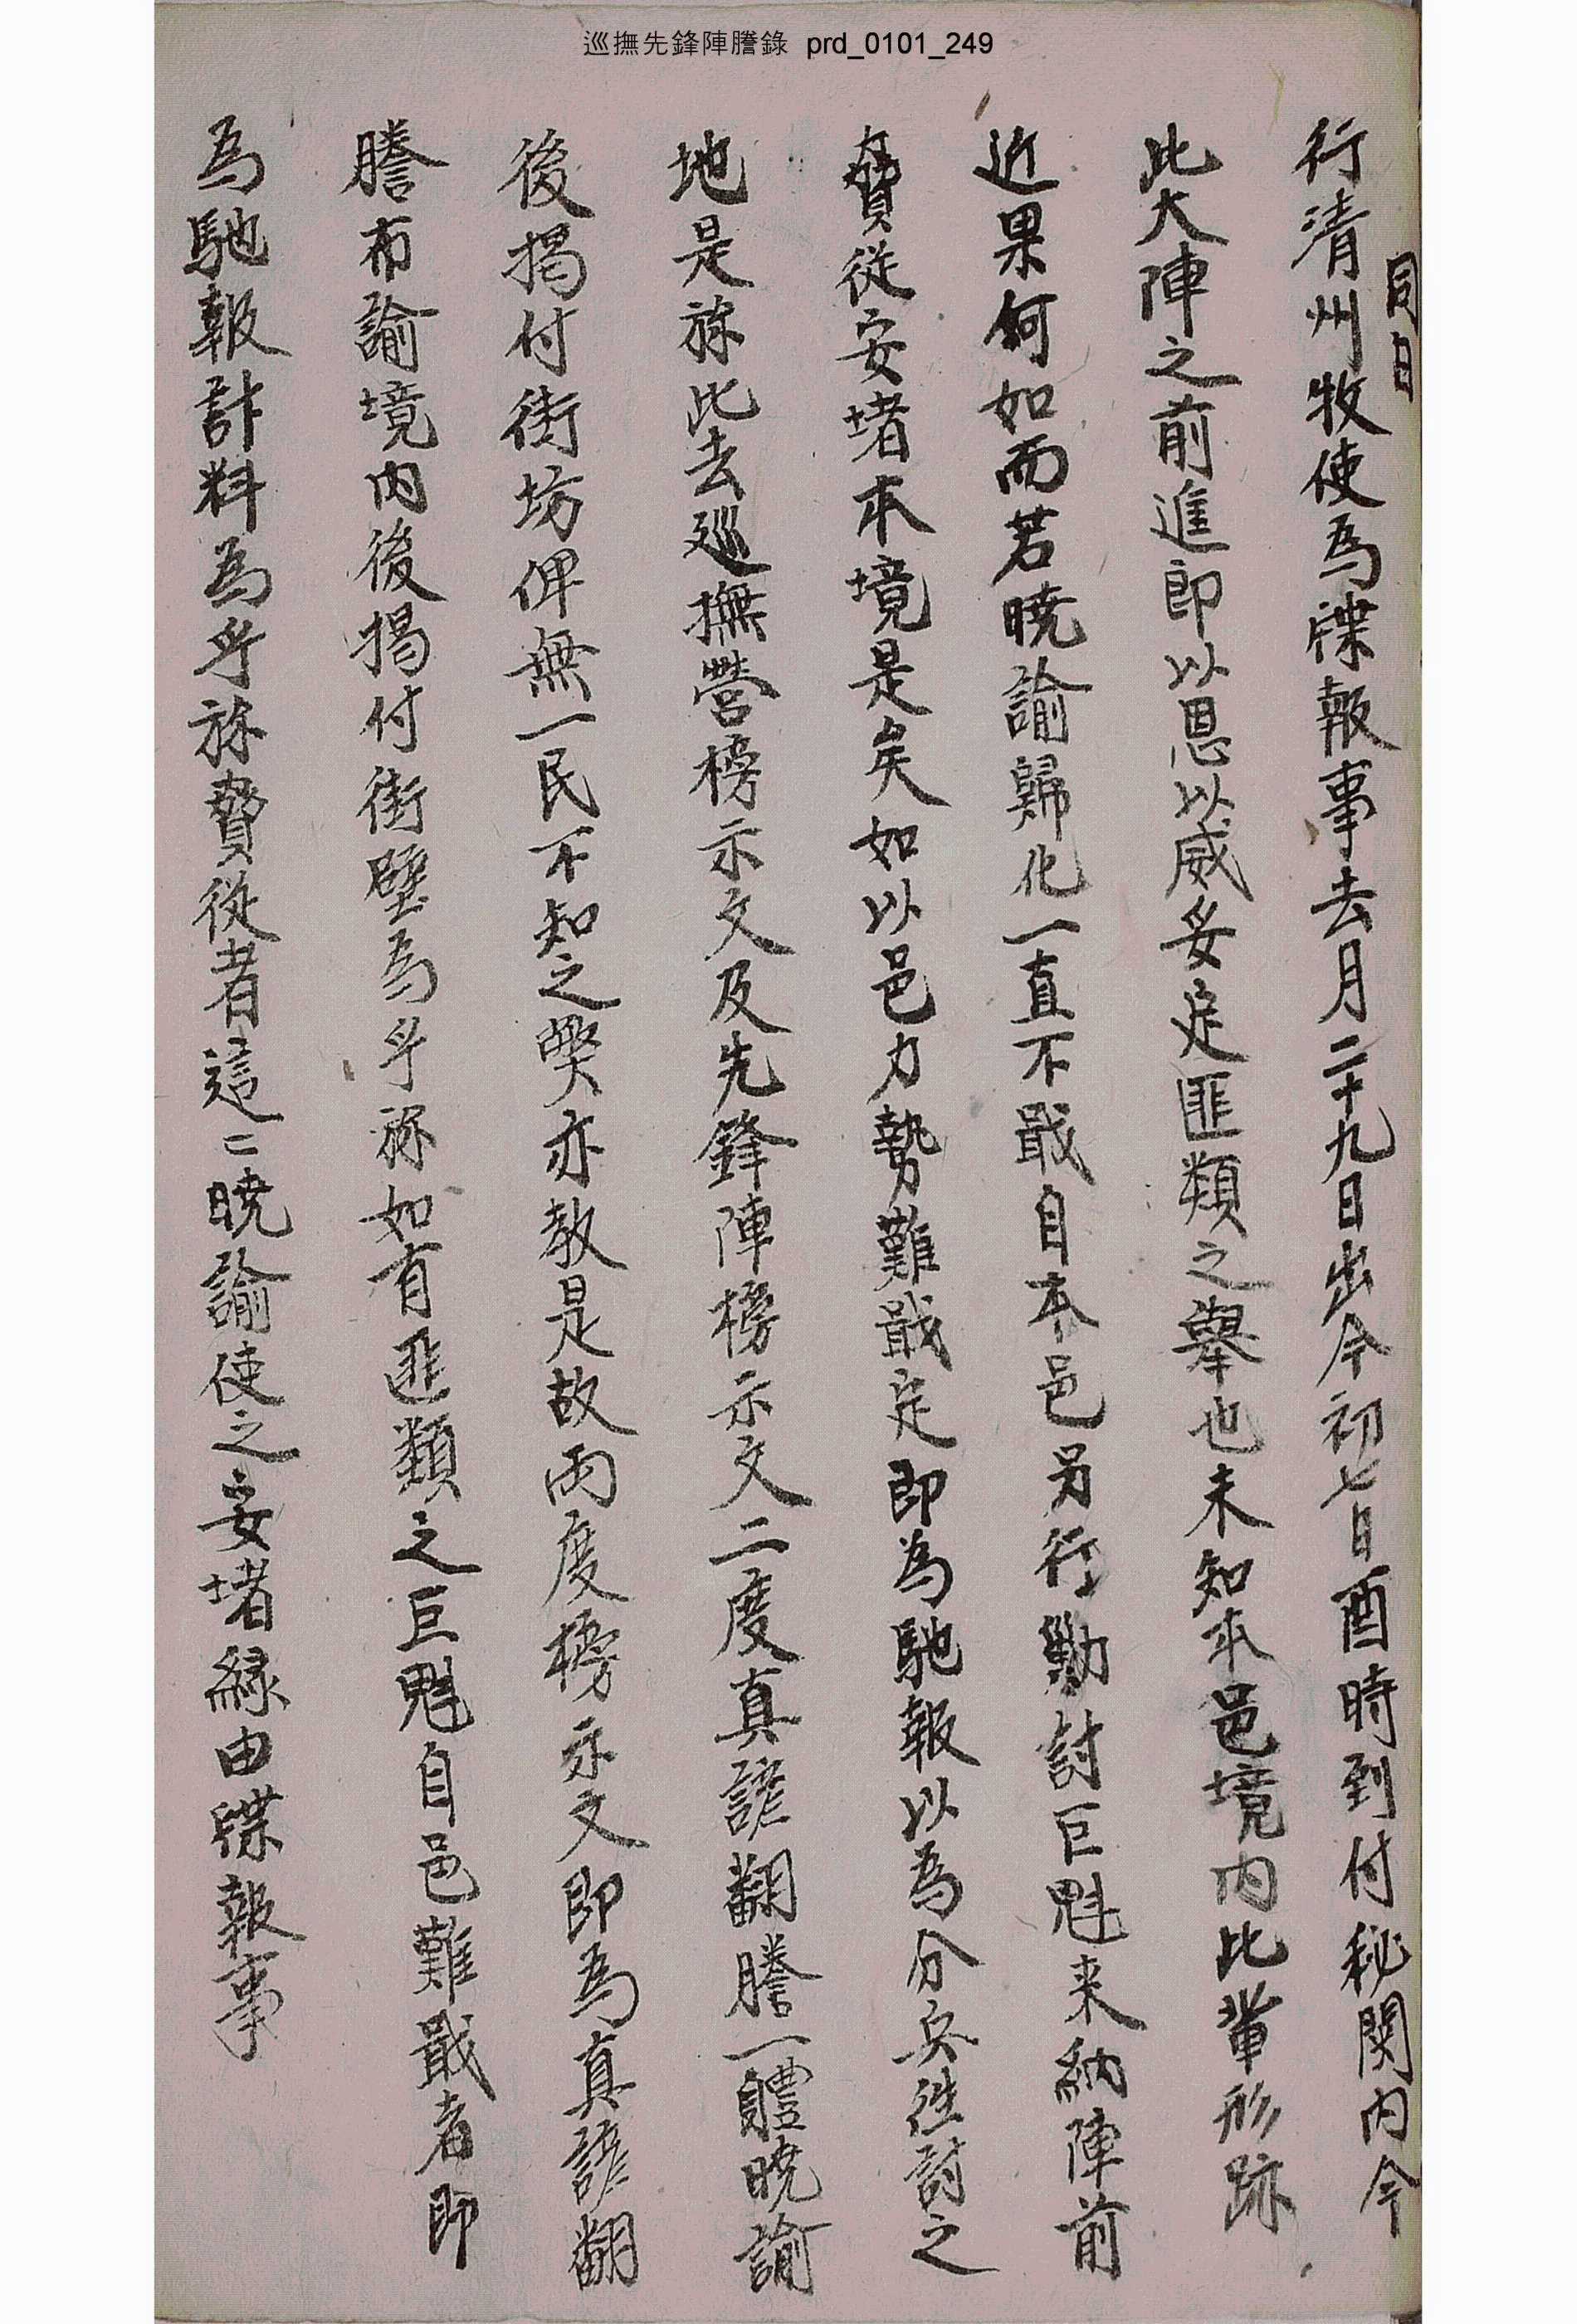 巡撫先鋒陣謄錄 prd_0101_249
同日
行清州牧使爲牒報事去月二十九日出今初七日酉時到付秘関内今
此大陣之前進卽以恩以威妥定匪類之擧也未知本邑境内此輩形跡
近果何如而若曉諭歸化一直不戢自本邑另行勦討巨魁来納陣前
脅從安堵本境是矣如以邑力勢難戢定卽為馳報以爲分兵徃討之
地是旀此去廵撫營榜示文及先鋒陣榜示文二度真諺翻謄一軆曉諭
後揭付街坊俾無一民不知之獘亦敎是故兩度榜示文卽爲真諺翻
謄布諭境内後揭付街壁爲乎旀如有匪類之巨魁自邑難戢者卽
爲馳報計料爲乎旀脅從者這這曉諭使之妥堵緣由牒報事